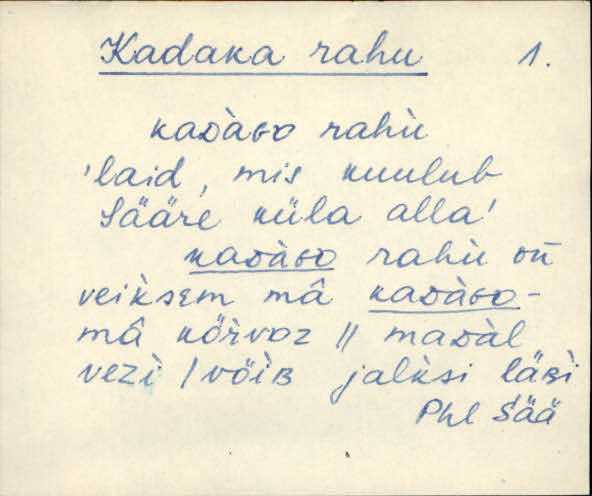 Kadaka rahu 1.
kaᴅ̀aɢo rahù
'laid, mis kuulub
Sääre küla alla'
kaᴅ̀aɢo rahù oǹ
veik̀sem mâ kaᴅ̀aɢo-
mâ kör̀voz || maᴅ̀al
vezì / vöìʙ jalk̀si läʙì
Phl Sää